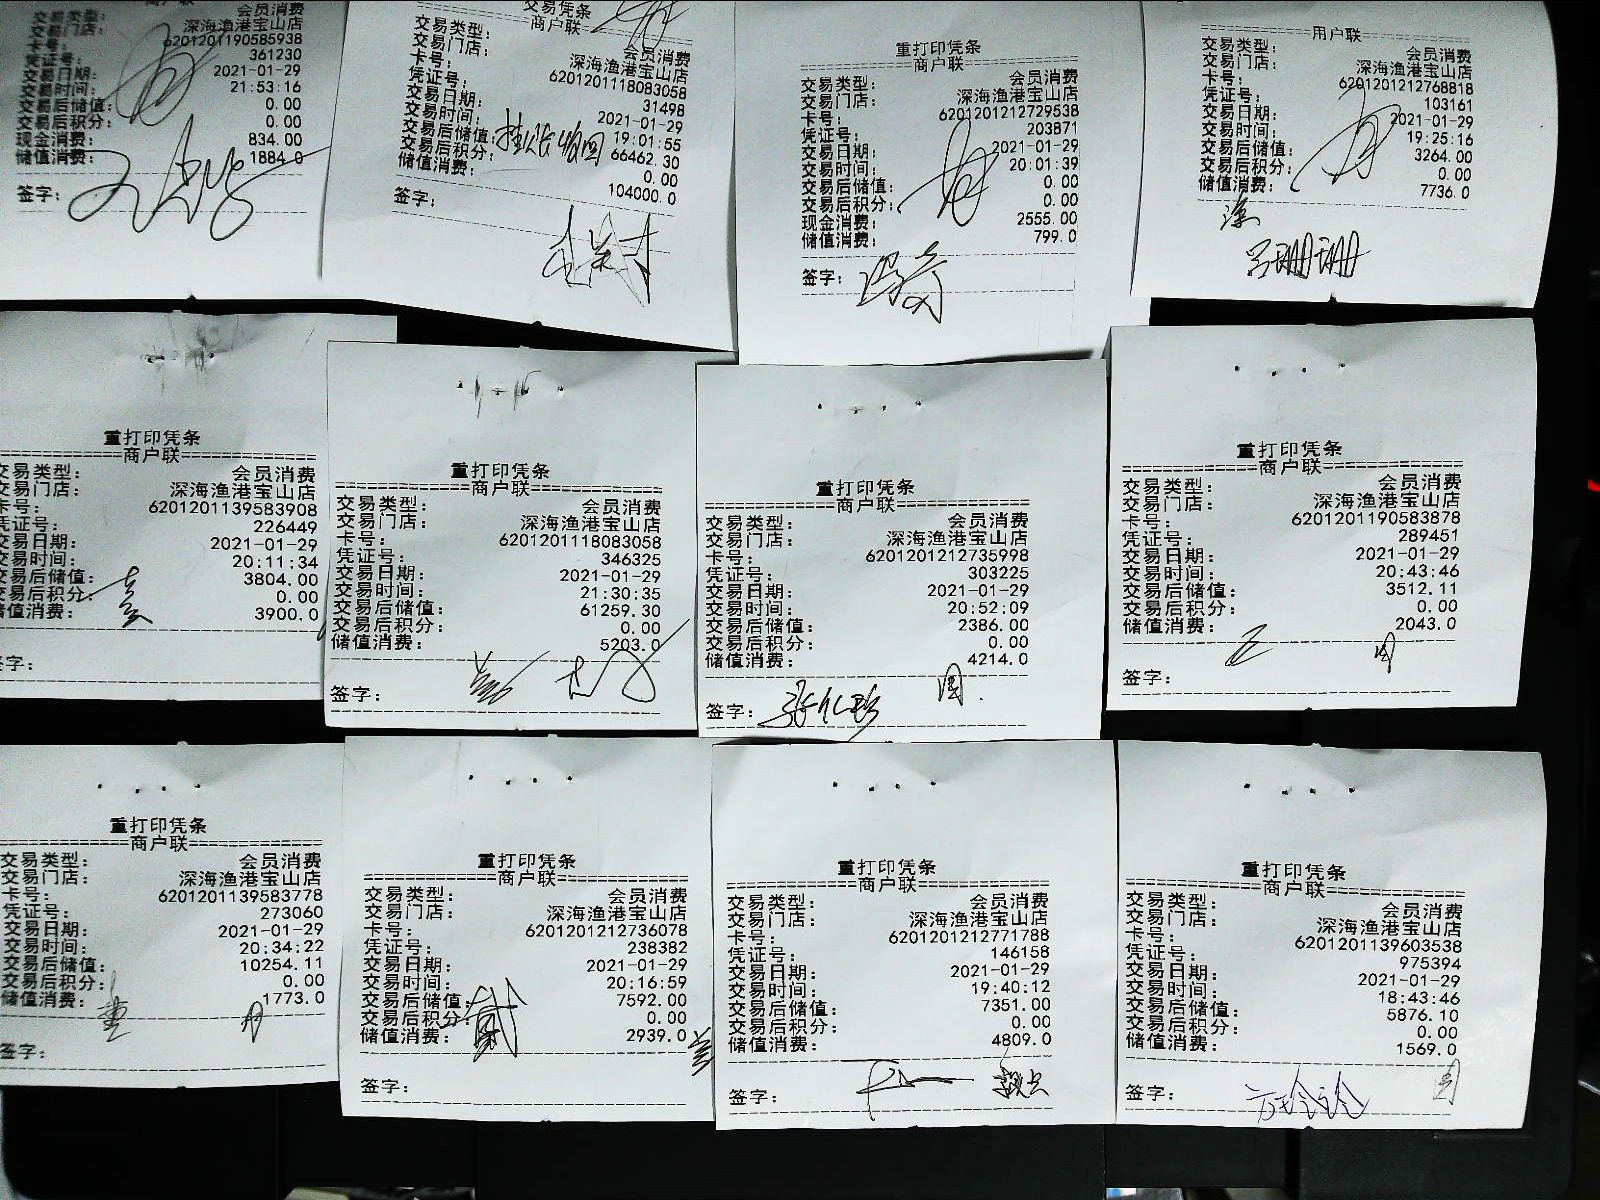 会员消费
交易门店： 深海渔港宝山店
卡号： 6201201190585938
凭证号： 361230
交易日期： 2021-01-29
交易时间： 21:53:16
交易后储值： 0.00
交易后积分： 0.00
现金消费： 834.00
储值消费： 1884.0
签字：
交易凭条
商户联
交易类型： 会员消费
交易门店： 深海渔港宝山店
卡号： 6201201118083058
凭证号： 31498
交易日期： 2021-01-29
交易时间： 19:01:55
交易后储值： 66462.30
交易后积分： 0.00
储值消费： 104000.0
签字：
重打印凭条
商户联
交易类型： 会员消费
交易门店： 深海渔港宝山店
卡号： 6201201212729538
凭证号： 203871
交易日期： 2021-01-29
交易时间： 20:01:39
交易后储值： 0.00
交易后积分： 0.00
现金消费： 2555.00
储值消费： 799.0
签字：
用户联
交易类型： 会员消费
交易门店： 深海渔港宝山店
卡号： 6201201212768818
凭证号： 103161
交易日期： 2021-01-29
交易时间： 19:25:16
交易后储值： 3264.00
交易后积分： 0.00
储值消费： 7736.0
吕珊珊
重打印凭条
商户联
交易类型： 会员消费
交易门店： 深海渔港宝山店
卡号： 6201201139583908
凭证号： 226449
交易日期： 2021-01-29
交易时间： 20:11:34
交易后储值： 3804.00
交易后积分： 0.00
储值消费： 3900.0
签字：
重打印凭条
商户联
交易类型： 会员消费
交易门店： 深海渔港宝山店
卡号： 6201201118083058
凭证号： 346325
交易日期： 2021-01-29
交易时间： 21:30:35
交易后储值： 61259.30
交易后积分： 0.00
储值消费： 5203.0
签字：
重打印凭条
商户联
交易类型： 会员消费
交易门店： 深海渔港宝山店
卡号： 6201201212735998
凭证号： 303225
交易日期： 2021-01-29
交易时间： 20:52:09
交易后储值： 2386.00
交易后积分： 0.00
储值消费： 4214.0
签字： 周
重打印凭条
商户联
交易类型： 会员消费
交易门店： 深海渔港宝山店
卡号： 6201201190583878
凭证号： 289451
交易日期： 2021-01-29
交易时间： 20:43:46
交易后储值： 3512.11
交易后积分： 0.00
储值消费： 2043.0
签字：
重打印凭条
商户联
交易类型： 会员消费
交易门店： 深海渔港宝山店
卡号： 6201201139583778
凭证号： 273060
交易日期： 2021-01-29
交易时间： 20:34:22
交易后储值： 10254.11
交易后积分： 0.00
储值消费： 1773.0
董
签字：
重打印凭条
商户联
交易类型： 会员消费
交易门店： 深海渔港宝山店
卡号： 6201201212736078
凭证号： 238382
交易日期： 2021-01-29
交易时间： 20:16:59
交易后储值： 7592.00
交易后积分： 0.00
储值消费： 2939.0
签字：
重打印凭条
商户联
交易类型： 会员消费
交易门店： 深海渔港宝山店
卡号： 6201201212771788
凭证号： 146158
交易日期： 2021-01-29
交易时间： 19:40:12
交易后储值： 7351.00
交易后积分： 0.00
储值消费： 4809.0
签字：
重打印凭条
商户联
交易类型： 会员消费
交易门店： 深海渔港宝山店
卡号： 6201201139603538
凭证号： 975394
交易日期： 2021-01-29
交易时间： 18:43:46
交易后储值： 5876.10
交易后积分： 0.00
储值消费： 1569.0
签字：